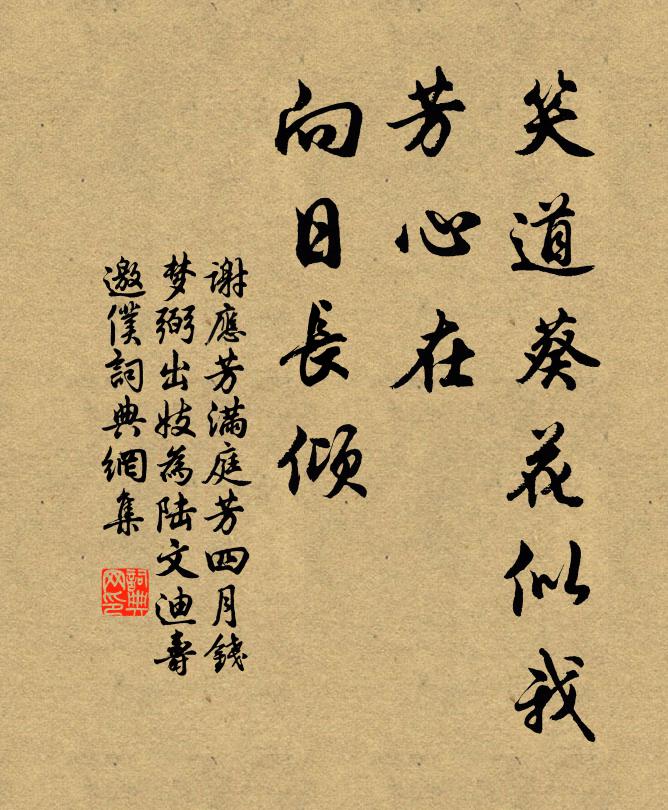 笑道葵花似我
芳心在
向日長傾
謝應芳满庭芳四月錢
梦弼出妓為陆文迪壽
邀僕詞典網集
詞典
网印